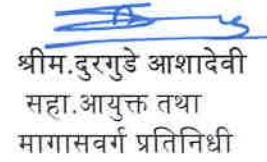 श्रीम.दुरगुडे आशादेवी
सहा.आयुक्त तथा
मागासवर्ग प्रतिनिधी